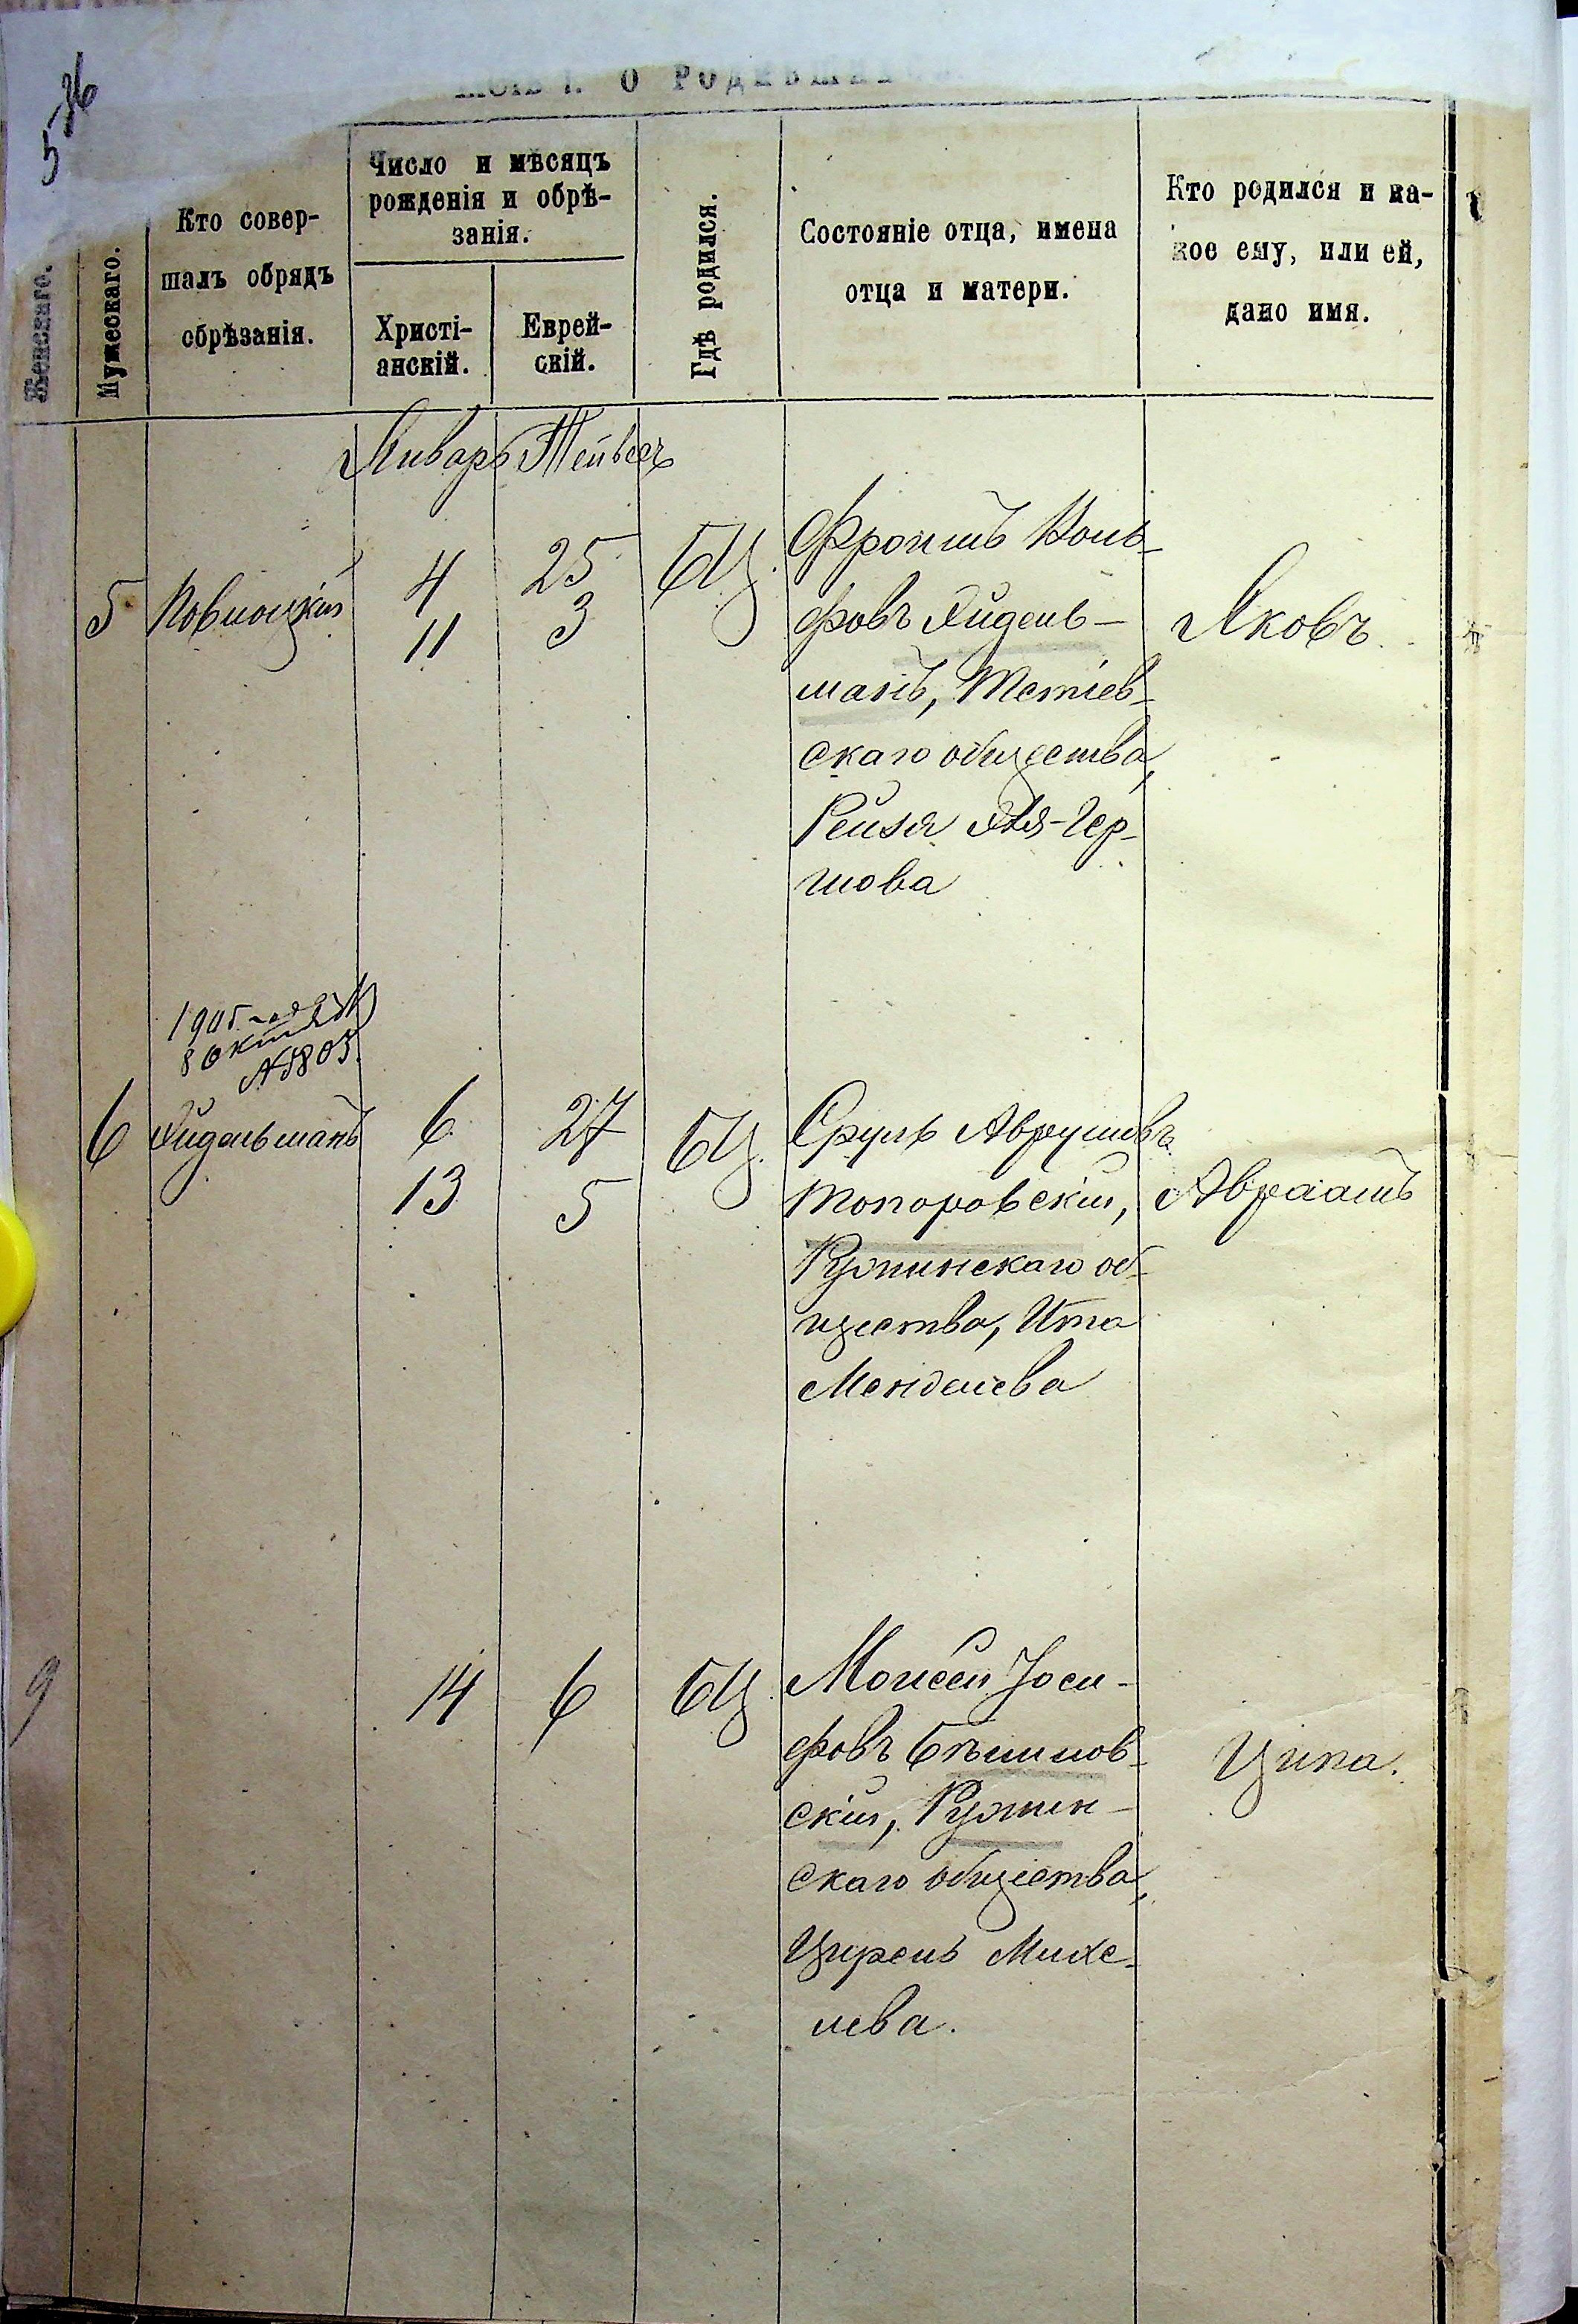 5 36
О Родившихся
Женскаго.
Мужескаго.
Кто совер-
шалъ обрядъ
обрѣзанія.
Число и мѣсяцъ
рожденія и обрѣ-
занія.
Христі-
анскій.
Еврей-
скій.
Гдѣ родился.
Состояніе отца, имена
отца и матери.
Кто родился и ка-
кое ему, или ей,
дано имя.
Январь Тейвесъ
5
4 25
11 3
БЦ.
Фроимъ Воль-
фовъ Эйдель-
манъ, Тетіев-
скаго общества,
Рейзя Гер-
шова
Яковъ.
1905 года
8 октяб
№ 803.
6 Эйдельманъ
6 27
13 5
БЦ.
Сруль Аврумовъ
Топоровскій,
Ружинскаго об-
щества, Ита
Менделева
Авраамъ
9
14 6
БЦ.
Моисей Іоси-
фовъ
скій, Ружин-
скаго общества,
Цирель Михе-
лева.
Ципа.